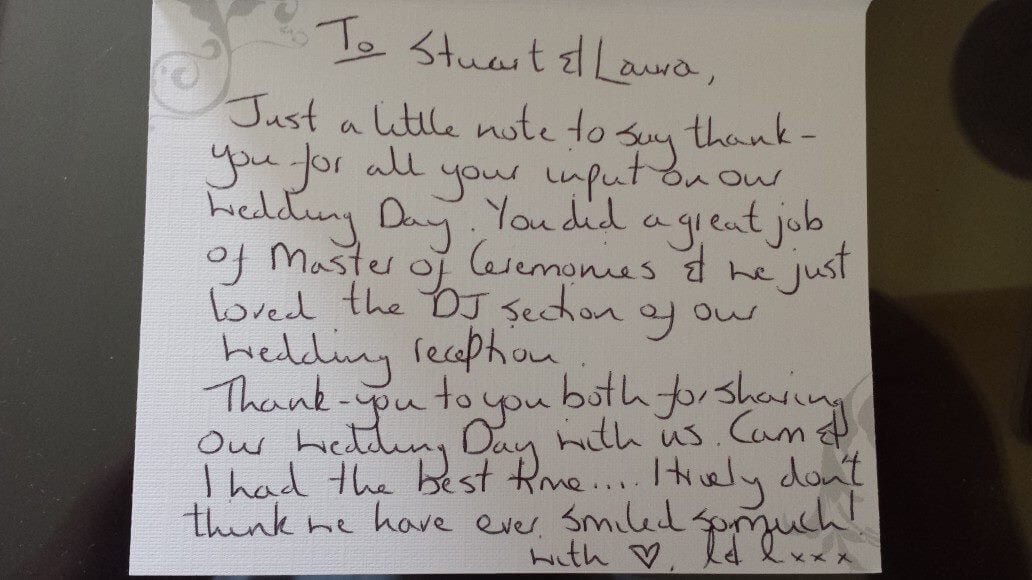 To Stuart & Laura,
Just a little note to say thank-
you for all your input on our
Wedding Day. You did a great job
of Master of Ceremonies & we just
loved the DJ section of our
wedding reception.
Thank-you to you both for sharing
Our Wedding Day with us. Cam &
I had the best time.... I truely don't
think we have ever smiled so much!
with ♡. xxx